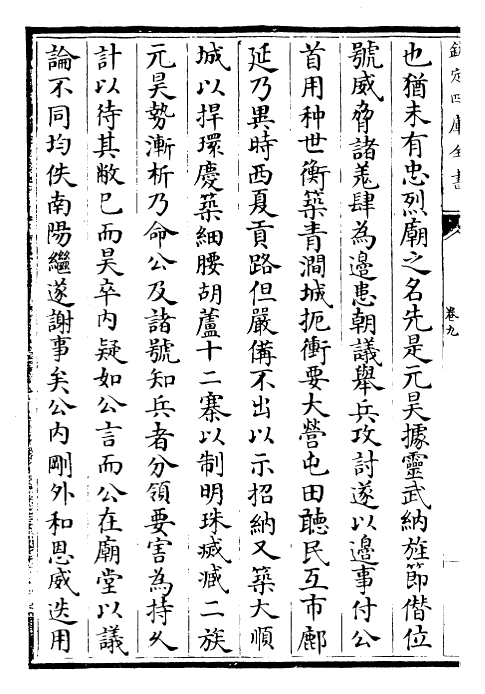 欽定四庫全書
卷九
也猶未有忠烈廟之名先是元昊據靈武納旌節僣位
號威脅諸羗肆為邊患朝議舉兵攻討遂以邊事付公
首用种世衡築青澗城扼衝要大營屯田聽民互市鄜
延乃異時西夏貢路但嚴備不出以示招納又築大順
城以捍環慶築細腰胡蘆十二寨以制明珠㓕臧二族
元昊勢漸析乃命公及諸號知兵者分領要害為持乆
計以待其敝已而昊卒内疑如公言而公在廟堂以議
論不同均佚南陽繼遂謝事矣公内剛外和恩威迭用